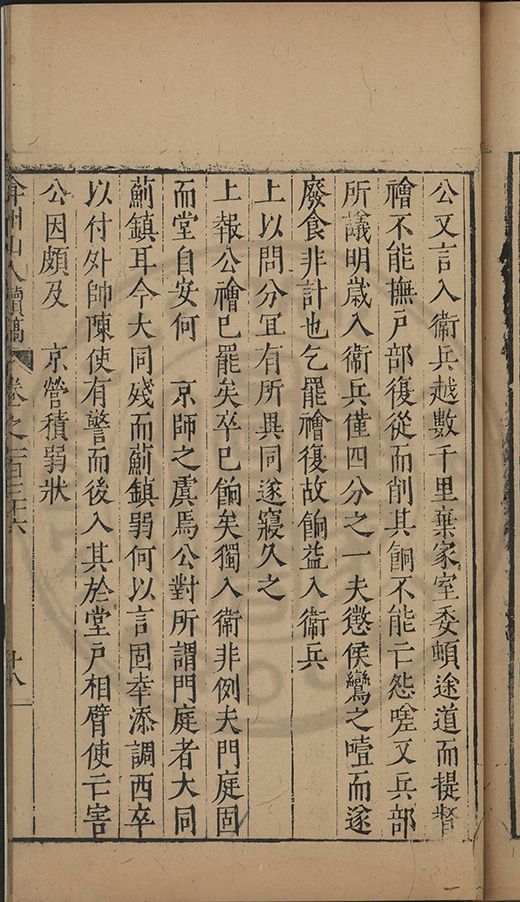 公又言入衞兵越數千里棄家室委頓途道而提督
禬不能撫戶部復從而削其餉不能亡怨嗟又兵部
所議明歲入衞兵僅四分之一夫懲侯鸞之噎而遂
廢食非計也乞罷禬復故餉益入衞兵
上以問分宜有所異同遂寢久之
上報公禬已罷矣卒已餉矣獨入衛非例夫門庭固
而堂自安何　京師之虞焉公對所謂門庭者大同
薊鎮耳今大同殘而薊鎮弱何以言固幸添調西卒
以付外帥陳使有警而後入其於堂戶相臂使亡害
公因頗及　京營積弱狀
弇州山人續稿 卷之一百三十六 十八